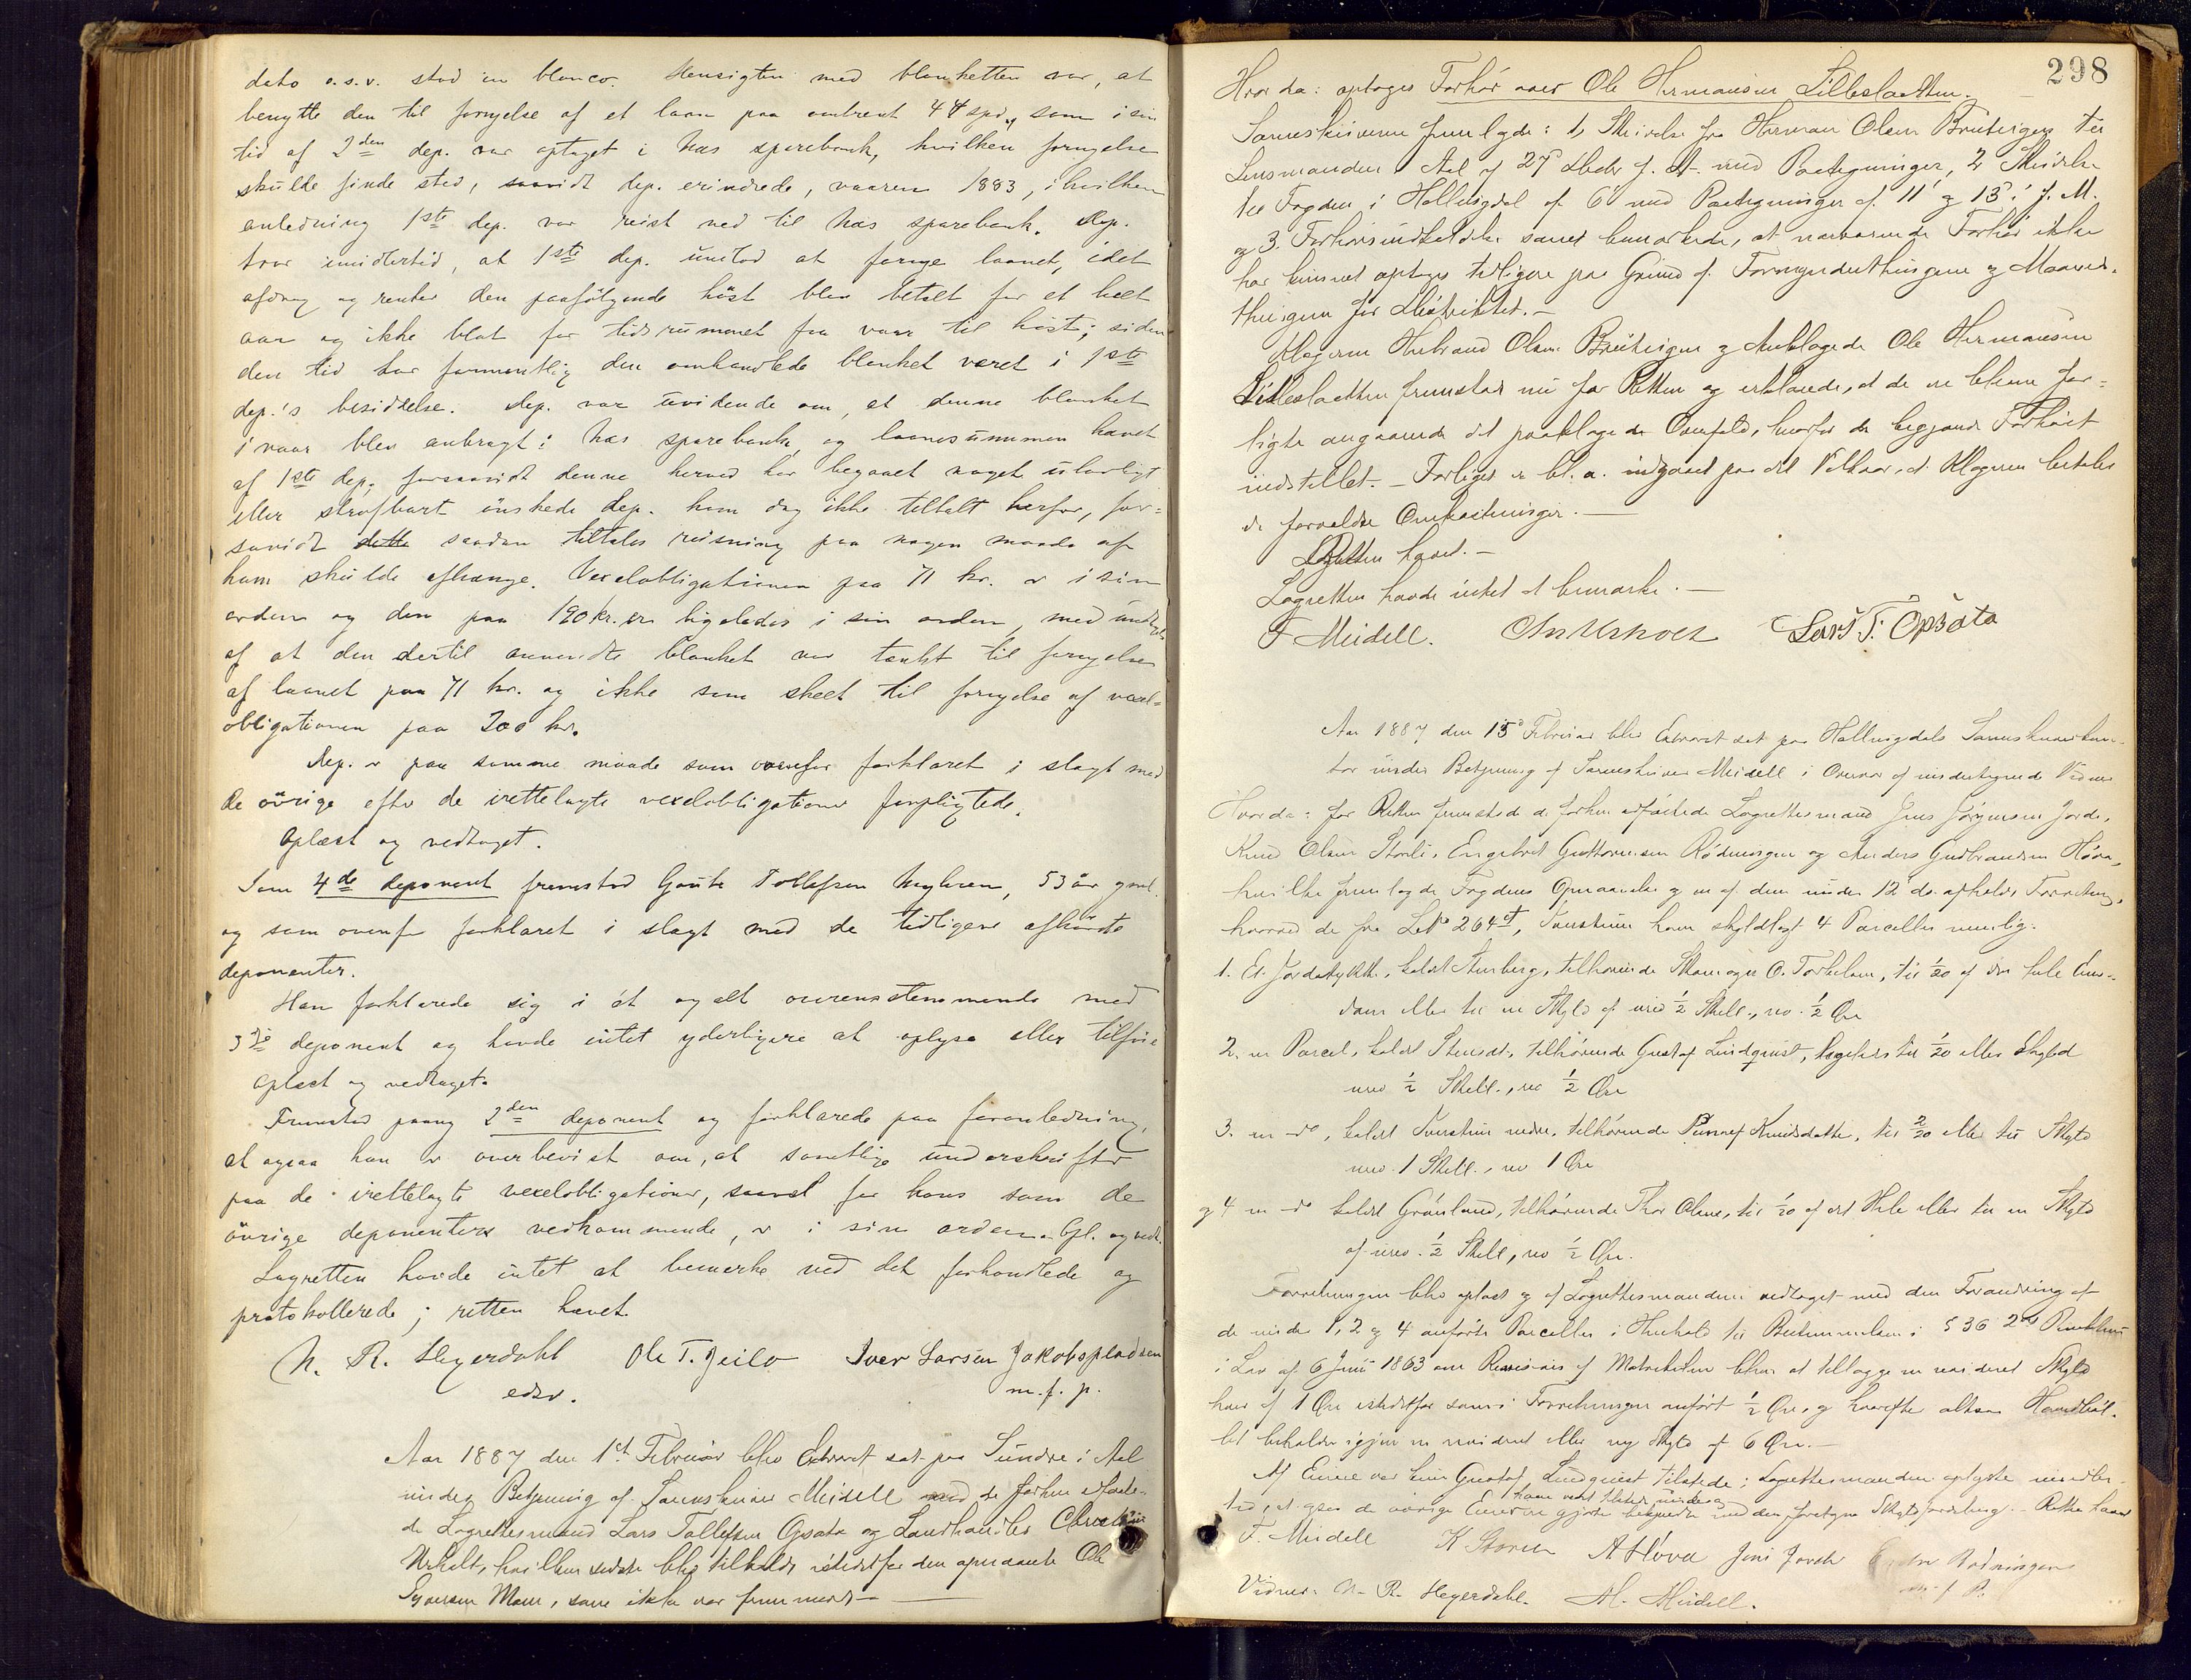 dato o.s.v. stod in blanco. Hensigten med blanketten var, at
benytte den til fornyelse af et laan paa omtrent 44 spd., som i sin
tid af 2den dep. var optaget i Næs sparebank, hvilken fornyelse
skulde finde sted, saavidt dep. erindrede, vaaren 1883, i hvilken
anledning 1ste dep. var reist ned til Næs sparebank. Dep.
tror imidlertid, at 1ste dep. undlod at fornye laanet, idet
afdrag og renter den paafølgende høst blev betalt for et helt
aar og ikke blot for tidsrummet fra vaar til høst; siden
den tid har formentlig den omhandlede blanket været i 1ste
dep.'s besiddelse. Dep. var uvidende om, at denne blanket
i vaar blev anbragt i Næs sparebank, og laanesummen hævet
af 1ste dep.; forsaavidt denne herved har begaaet noget ulovligt
eller strafbart ønskede dep. ham dog ikke tiltalt herfor, for-
saavidt dette saadan tiltales reisning paa nogen maade af
ham skulde afhænge. Vexelobligationen paa 71 kr. er i sin
orden og den paa 190 kr. er ligeledes i sin orden, med undtag.
af at den dertil anvendte blanket var tænkt til fornyelse
af laanet paa 71 kr. og ikke som skeet til fornyelse af vexel-
obligationen paa 200 kr.
Dep. er paa samme maade som ovenfor forklaret i slægt med
de øvrige efter de irettelagte vexelobligationer forpligtede.
Oplæst og vedtaget.
Som 4de deponent fremstod Gaute Tollefsen Myhren, 53 år gml.
og som ovenfor forklaret i slægt med de tidligere afhørte
deponenter.
Han forklarede sig i ét og alt overensstemmende med
3die deponent og havde intet yderligere at oplyse eller tilføie
Oplæst og vedtaget.
Fremstod paany 2den deponent og forklarede paa foranledning,
at ogsaa han er overbevist om, at samtlige underskrifter
paa de irettelagte vexelobligationer, saavel for hans som de
øvrige deponenters vedkommende, er i sin orden. Opl. og vedt.
Lagretten havde intet at bemerke ved det forhandlede og
protokollerede; retten hævet.
N. R. Heyerdahl Ole T. Geilo Iver Larsen Jakobspladsen
edsv. m. f. p.
Aar 1887 den 1st Februar blev Extraret sat paa Sundre i Aal
under Betjening af Sorenskriver Meidell med de forhen edfæste-
de Lagrettesmænd Lars Tollefsen Opsata og Landhandler
Urholt, hvilken sidste blev tilkaldt istedetfor den opnævnte Ole
Moen, som ikke var fremmødt.
298
Hvor da: optoges Forhør over Ole Hermansen Lilleslaatten.
Sorenskriveren fremlagde: 1, Skrivelse fra Herman Olsen Brüteigen til
Lensmanden i Aal af 27d Decbr. f. A. med Paategninger, 2, Skrivelse
til Fogden i Hallingdal af 6 med Paategninger af 11 og 13 i f. M.
og 3. Forhørsindkaldelse samt bemærkede, at nærværende Forhør ikke
har kunnet optages tidligere paa Grund af Formynderthingene og Maaneds-
thingene for Distriktet.
Klageren Olsen Brüteigen og Anklagede Ole Hermansen
Lilleslaatten fremstod nu for Retten og erklærede, at de er blevne for-
ligte angaaende det paaklagede Overfald, hvorfor de begjærede Forhøret
indstillet. Forliget er bl. a. indgaaet paa det Vilkaar, at Klageren betaler
de forvoldte Omkostninger.
Retten hævet.
Lagretten havde intet at bemærke.
F. Meidell. Chr. Urholt Lars T. Opsata
Aar 1887 den 15d Februar blev Extraret sat paa Hallingdals Sorenskriverkon-
tor under Betjening af Sorenskriver Meidell i Overvær af undertegnede Vidner
Hvor da: for Retten fremstod de forhen edfæstede Lagrettesmænd Jens Jørgensen Jorde,
Knud Olsen Storli, Engebret Guttormsen Rødningen og Anders Gudbrandsen Høva,
hvilke fremlagde Fogdens Opnævnelse og en af dem under 12 ds. afholdt Forretning,
hvorved de fra L.No 264ct, Tverstuen have skyldlagt 4 Parceller nemlig:
1. Et Jordstykke, kaldet Stenberg, tilhørende Skomager O. Torkelsen, til 1/20 af den hele Eien-
dom eller til en Skyld af urev 1/2 Skill., rev. 1/2 Øre
2. en Parcel, kaldet, tilhørende Gustaf Lindquist, ligeledes til 1/20 eller Skyld
urev 1/2 Skill., rev 1/2 Øre
3. en do, kaldet Tverstuen nedre, tilhørende Knudsdatter, til 2/20 eller til Skyld
urev. 1 Skill., rev 1 Øre
og 4 en do kaldet Grønland, tilhørende Thor Olsen, til 1/20 af det Hele eller til en Skyld
af urev. 1/2 Skill, rev 1/2 Øre.
Forretningen blev oplæst og af Lagrettesmændene vedtaget med den Forandring at
de under 1, 2 og 4 anførte Parceller i Henhold til Bestemmelsen i § 36 2det Punktum
i Lov af 6 Juni 1863 om Revision af Matrikelen blev at tillægge en revideret Skyld
hver af 1 Øre istedetfor som i Forretningen anført 1/2 Øre, og hvorefter altsaa Hovedbøl-
let beholder igjen en revideret eller ny Skyld af 6 Øre.
Af Eierne var kun Gustaf Lindquist tilstede; Lagrettesmændene oplyste imidler-
tid, at ogsaa de øvrige Eiere er gjorte bekjendte med den foretagne Skyldfordeling. Retten hævet
F. Meidell K Storli A Høva Jens Jorde Rødningen
m. f. P.
Vidner: N. R. Heyerdahl. M. Meidell.